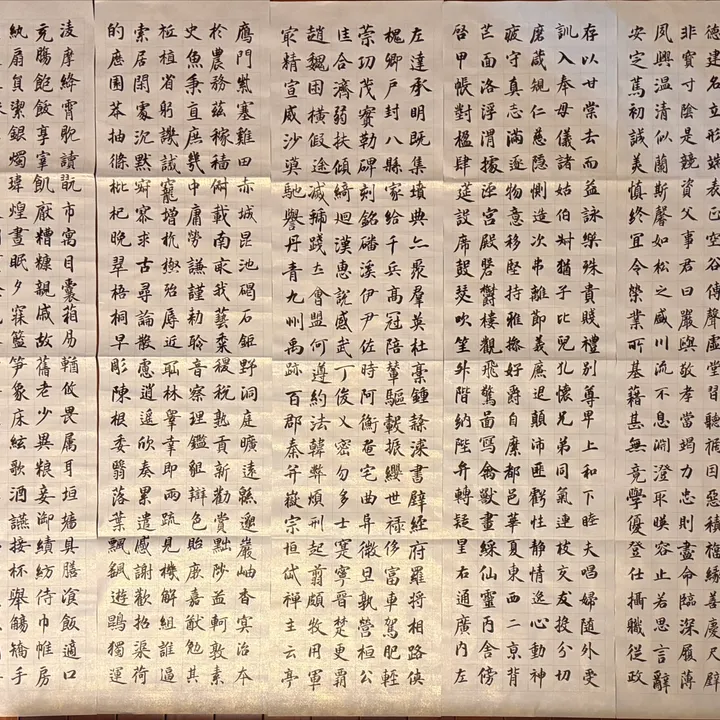 德建名立形端表正空谷傳聲虛堂習聽禍因惡積福緣善慶尺璧
非寶寸陰是競資父事君曰嚴與敬孝當竭力忠則盡命臨深履薄
夙興溫凊似蘭斯馨如松之盛川流不息淵澄取暎容止若思言辭
安定篤初誠美慎終宜令榮業所基藉甚無竟學優登仕攝職從政
存以甘棠去而益詠樂殊貴賤禮別尊卑上和下睦夫唱婦隨外受
訓入奉母儀諸姑伯叔猶子比兒孔懷兄弟同氣連枝交友投分切
磨箴規仁慈隱惻造次弗離節義廉退顛沛匪虧性靜情逸心動神
疲守真志滿逐物意移堅持雅操好爵自縻都邑華夏東西二京背
芒面洛浮渭據涇宮殿磐鬱樓觀飛驚圖寫禽獸畫綵仙靈丙舍傍
啓甲帳對楹肆筵設席鼓瑟吹笙升階納陛弁轉疑星右通廣內左
左達承明既集墳典亦聚羣英杜稾鍾隸漆書壁經府羅將相路俠
槐卿戶封八縣家給千兵高冠陪輦驅轂振纓世祿侈富車駕肥輕
策功茂實勒碑刻銘磻溪伊尹佐時阿衡奄宅曲阜微旦孰營桓公
佳合濟弱扶傾綺迴漢惠說感武丁俊乂密勿多士寔寧晉楚更霸
趙魏困橫假途滅虢踐土會盟何遵約法韓弊煩刑起翦頗牧用軍
最精宣威沙漠馳譽丹青九州禹跡百郡秦并嶽宗恒岱禪主云亭
鴈門紫塞雞田赤城昆池碣石鉅野洞庭曠遠綿邈巖岫杳冥治本
於農務茲稼穡俶載南畝我藝黍稷稅熟貢新勸賞黜陟孟軻敦素
史魚秉直庶幾中庸勞謙謹勑聆音察理鑑貌辯色貽厥嘉猷勉其
祗植省躬譏誡寵增抗極殆辱近恥林皋幸即兩疏見機解組誰逼
索居閑處沉默寂寥求古尋論散慮逍遙欣奏累遣慼謝歡招渠荷
的歷園莽抽條枇杷晚翠梧桐早彫陳根委翳落葉飄颻遊鵾獨運
淩摩絳霄耽讀翫市寓目囊箱易輶攸畏屬耳垣墻具膳飡飯適口
充腸飽飫享宰飢厭糟糠親戚故舊老少異粮妾御績紡侍巾帷房
紈扇員潔銀燭瑋煌晝眠夕寐籃笋象床絃歌酒讌接杯舉觴矯手